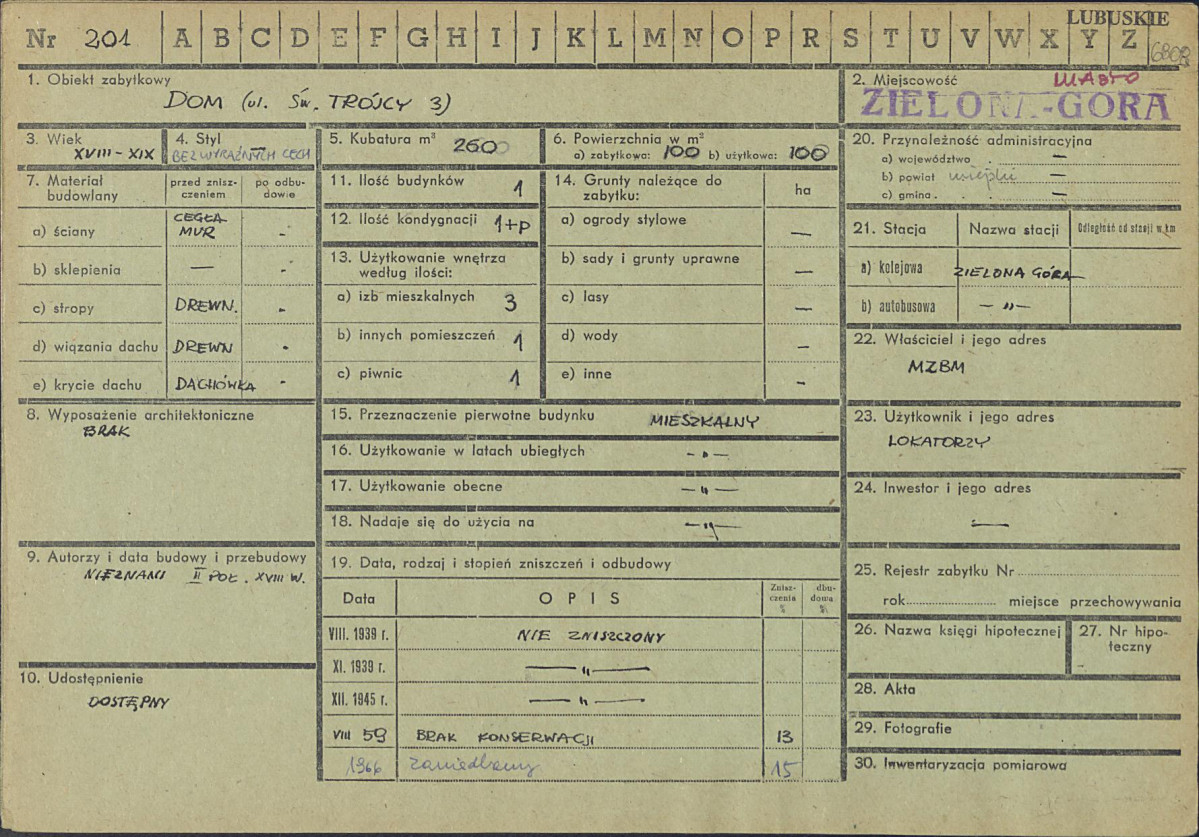 LUBUSKIE
Nr 201 A B C D E F G H I J K L M N O P R S T U V W X Y Z
1. Obiekt zabytkowy
DOM (ul. ŚW. TRÓJCY 3)
2. Miejscowość MIASTO
ZIELONA-GÓRA
3. Wiek
XVIII – XIX
4. Styl
BEZ WYRAŹNYCH CECH
5. Kubatura m³ 2600
6. Powierzchnia w m²
a) zabytkowa: 100 b) użytkowa: 100
7. Materiał budowlany
przed znisz-
czeniem
po odbu-
dowie
a) ściany CEGŁA MUR -
b) sklepienia — -
c) stropy DREWN. -
d) wiązania dachu DREWN -
e) krycie dachu DACHÓWKA -
8. Wyposażenie architektoniczne
BRAK
9. Autorzy i data budowy i przebudowy
NIEZNANI II POŁ. XVIII W.
10. Udostępnienie
DOSTĘPNY
11. Ilość budynków 1
12. Ilość kondygnacji 1+P
13. Użytkowanie wnętrza
według ilości:
a) izb mieszkalnych 3
b) innych pomieszczeń 1
c) piwnic 1
14. Grunty należące do
zabytku: ha
a) ogrody stylowe —
b) sady i grunty uprawne —
c) lasy —
d) wody —
e) inne -
15. Przeznaczenie pierwotne budynku MIESZKALNY
16. Użytkowanie w latach ubiegłych - " -
17. Użytkowanie obecne - " -
18. Nadaje się do użycia na - " -
19. Data, rodzaj i stopień zniszczeń i odbudowy
Data OPIS Znisz-
czenia
%
dbu-
dowa
%
VIII. 1939 r. NIE ZNISZCZONY
XI. 1939 r. — " —
XII. 1945 r. — " —
VIII 59 BRAK KONSERWACJI 13
1966 zaniedbany 15
20. Przynależność administracyjna
a) województwo . —
b) powiat —
c) gmina . . . —
21. Stacja Nazwa stacji Odległość od stacji w km
a) kolejowa ZIELONA GÓRA
b) autobusowa — " —
22. Właściciel i jego adres
MZBM
23. Użytkownik i jego adres
LOKATORZY
24. Inwestor i jego adres
—
25. Rejestr zabytku Nr
rok miejsce przechowywania
26. Nazwa księgi hipotecznej
27. Nr hipo-
teczny
28. Akta
29. Fotografie
30. Inwentaryzacja pomiarowa